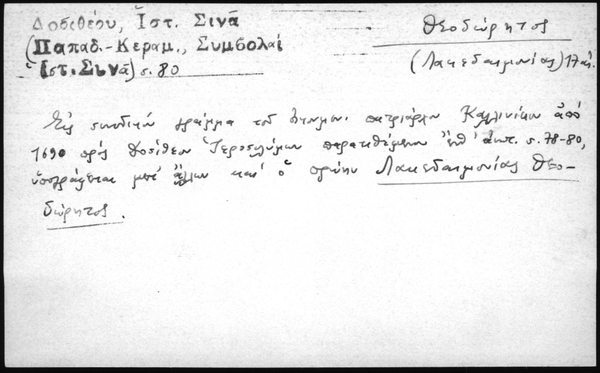 Δοσιθέου, Ἱστ. Σινᾶ
(Παπαδ.-Κεραμ., Συμβολαί
Ἱστ. Σινᾶ) s. 80
Θεοδώρητος
(Λακεδαιμονίας) 17 αἰ.
Εἰς συνοδικὸν γράμμα τοῦ οἰκουμ. πατριάρχου Καλλινίκου ἀπὸ
1690 πρὸς Δοσίθεον Ἱεροσολύμων παρατιθέμενον ἔνθ' ἀνωτ. s. 78-80,
ὑπογράφεται μετ' ἄλλων καὶ ὁ πρώην Λακεδαιμονίας Θεο-
δώρητος.